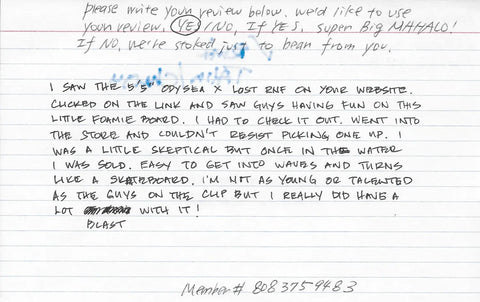 please write your review below. We'd like to use
your review. YES/NO, If YES, super Big MAHALO!
If NO, we're stoked just to hear from you.
I SAW THE 5'5" ODYSEA X LOST RNF ON YOUR WEBSITE.
CLICKED ON THE LINK AND SAW GUYS HAVING FUN ON THIS
LITTLE FOAMIE BOARD. I HAD TO CHECK IT OUT. WENT INTO
THE STORE AND COULDN'T RESIST PICKING ONE UP. I
WAS A LITTLE SKEPTICAL BUT ONCE IN THE WATER
I WAS SOLD. EASY TO GET INTO WAVES AND TURNS
LIKE A SKATEBOARD. I'M NOT AS YOUNG OR TALENTED
AS THE GUYS ON THE CLIP BUT I REALLY DID HAVE A
LOT WITH IT!
BLAST
Member# 8083759483